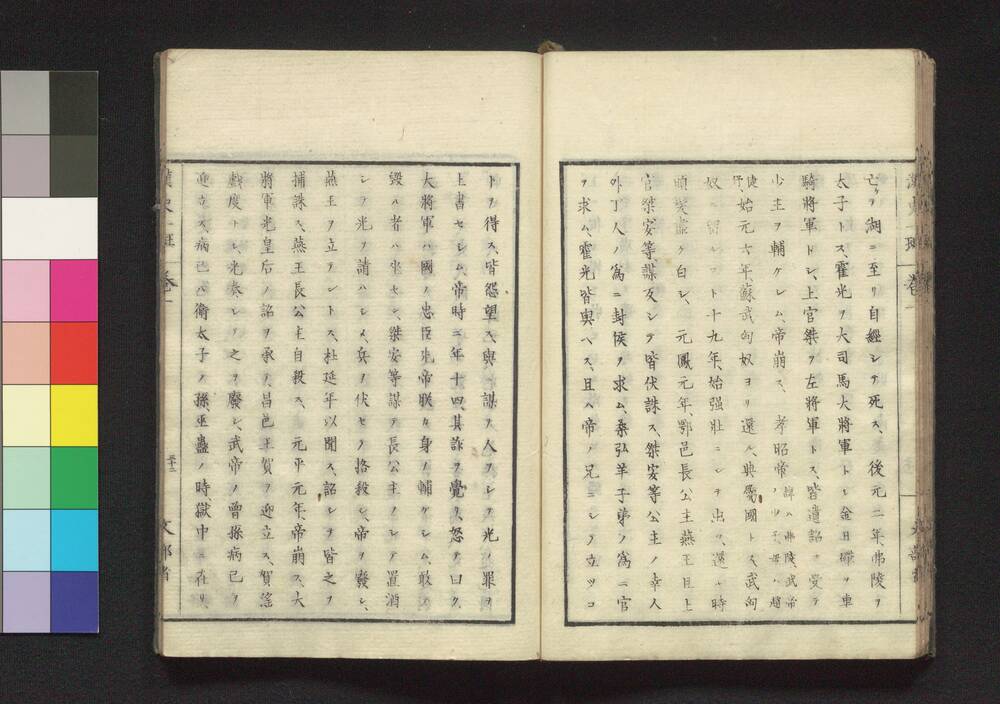 亡ケ、湖ニ至リ自經シテ死ス、　後元二年弗陵ヲ
太子トス、霍光ヲ大司馬大將軍トシ金日磾ヲ車
騎將軍トシ、上官桀ヲ左將軍トス、皆遺詔ヲ受テ
少主ヲ輔ケシム、帝崩ス、　孝昭帝
諱ハ弗陵、武帝
始元六年、蘇武匈奴ヨリ還ル、典屬國トス、武匈
奴ニ留ルコト十九年、始强壯ニシテ出ツ、還ル時
頭髮盡ク白シ、　元鳳元年、鄂邑長公主燕王旦上
官桀安等、謀反シテ皆伏誅ス、桀安等公主ノ幸人
外丁人ノ爲ニ封侯ヲ求ム、桑弘羊子弟ノ爲ニ官
ヲ求ム、霍光皆與ヘス、且ハ帝ノ兄ニシテ立ツコ
トヲ得ス、皆怨望ス、與ニ謀テ人ヲシテ光ノ罪ヲ
上書セシム、帝時ニ年十四、其詐ヲ覺リ、怒テ曰ク、
大將軍ハ國ノ忠臣、先帝朕カ身ヲ輔ケシム、敢テ
毀ル者ハ坐セン、桀安等謀テ長公主ヲシテ置酒
シテ光ヲ請ハシメ、兵ヲ伏セテ格殺シ、帝ヲ廢シ、
燕王ヲ立テントス、杜延年以聞ス、詔シテ皆之ヲ
捕誅ス、燕王長公主自殺ス、　元平元年、帝崩ス、大
將軍光皇后ノ詔ヲ承テ、昌邑王賀ヲ迎立ス、賀淫
戲度ナシ、光奏シテ之ヲ廢シ、武帝ノ曾孫病已ヲ
迎立ス、病已ハ衛太子ノ孫、巫蠱ノ時、獄中ニ在リ、
漢史一斑　卷一
三十二
文部省